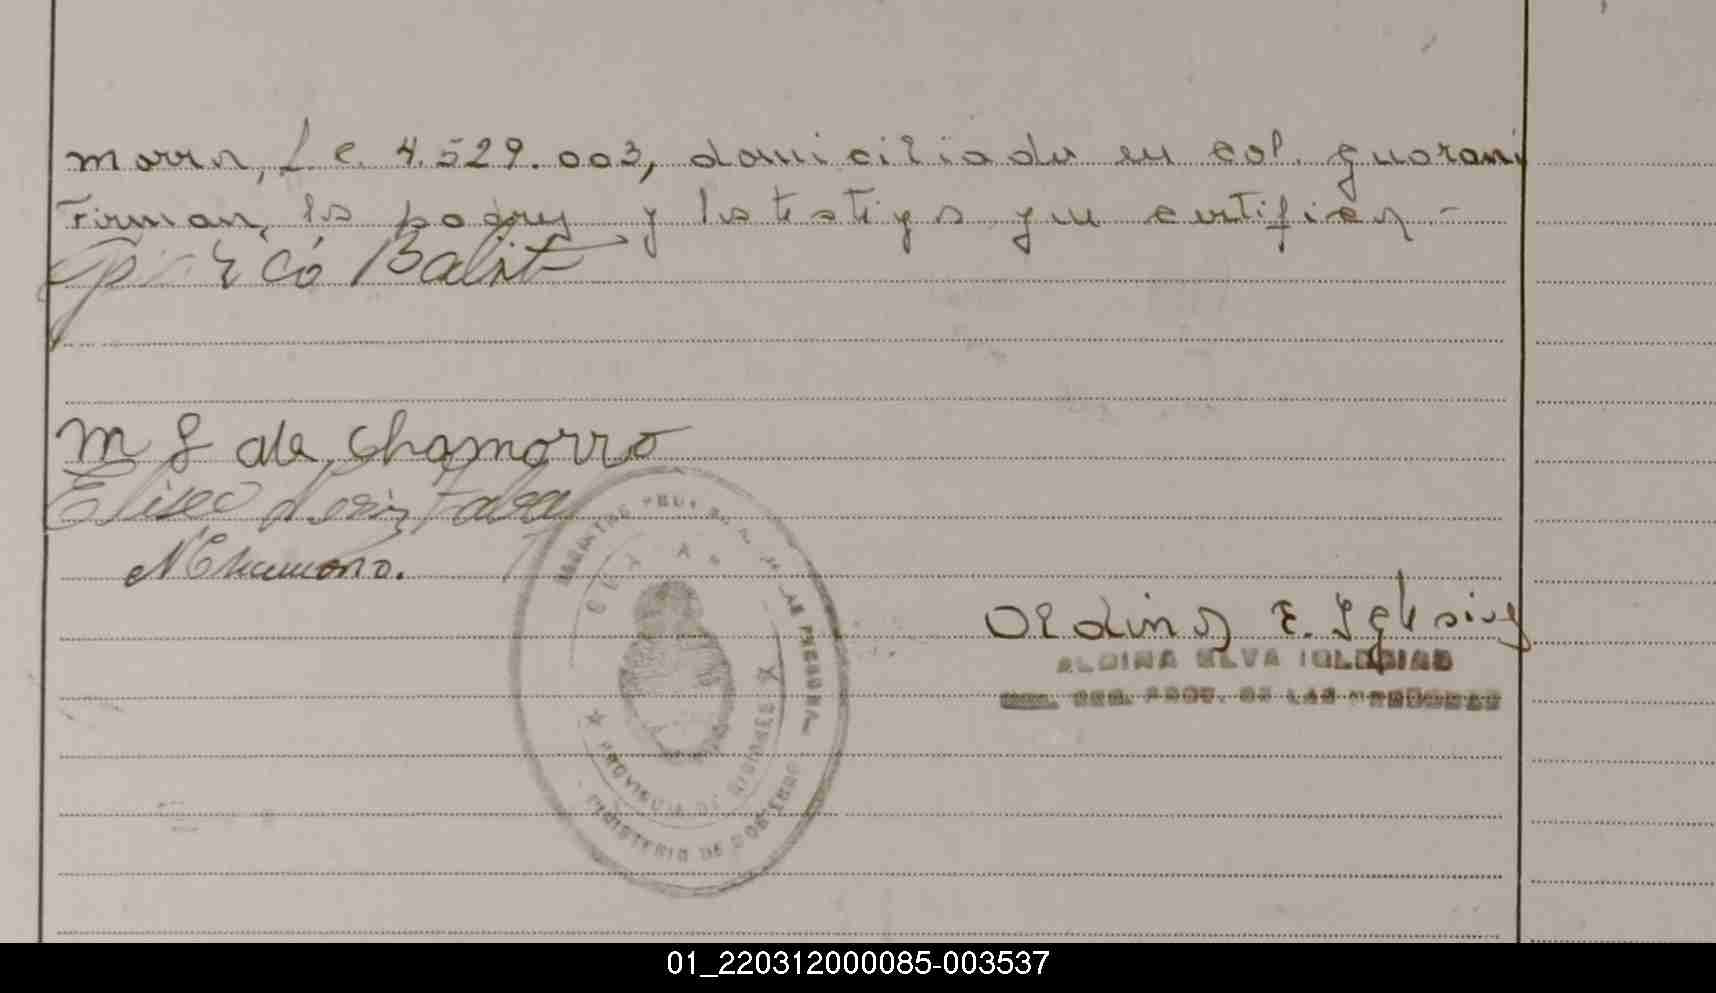 morro, L.e. 4.529.003, domiciliado en col. guarani
Firman, los padres y los testigos que certifican -
Balit
M G de Chamorro
Eliseo
N Chamorro.
Aldina E. Iglesias
ALDINA ELVA IGLESIAS
REG. PROV. DE LAS PERSONAS
REGISTRO PROVINCIAL DE LAS PERSONAS
MINISTERIO DE GOBIERNO
★ PROVINCIA DE MISIONES ★
01_220312000085-003537